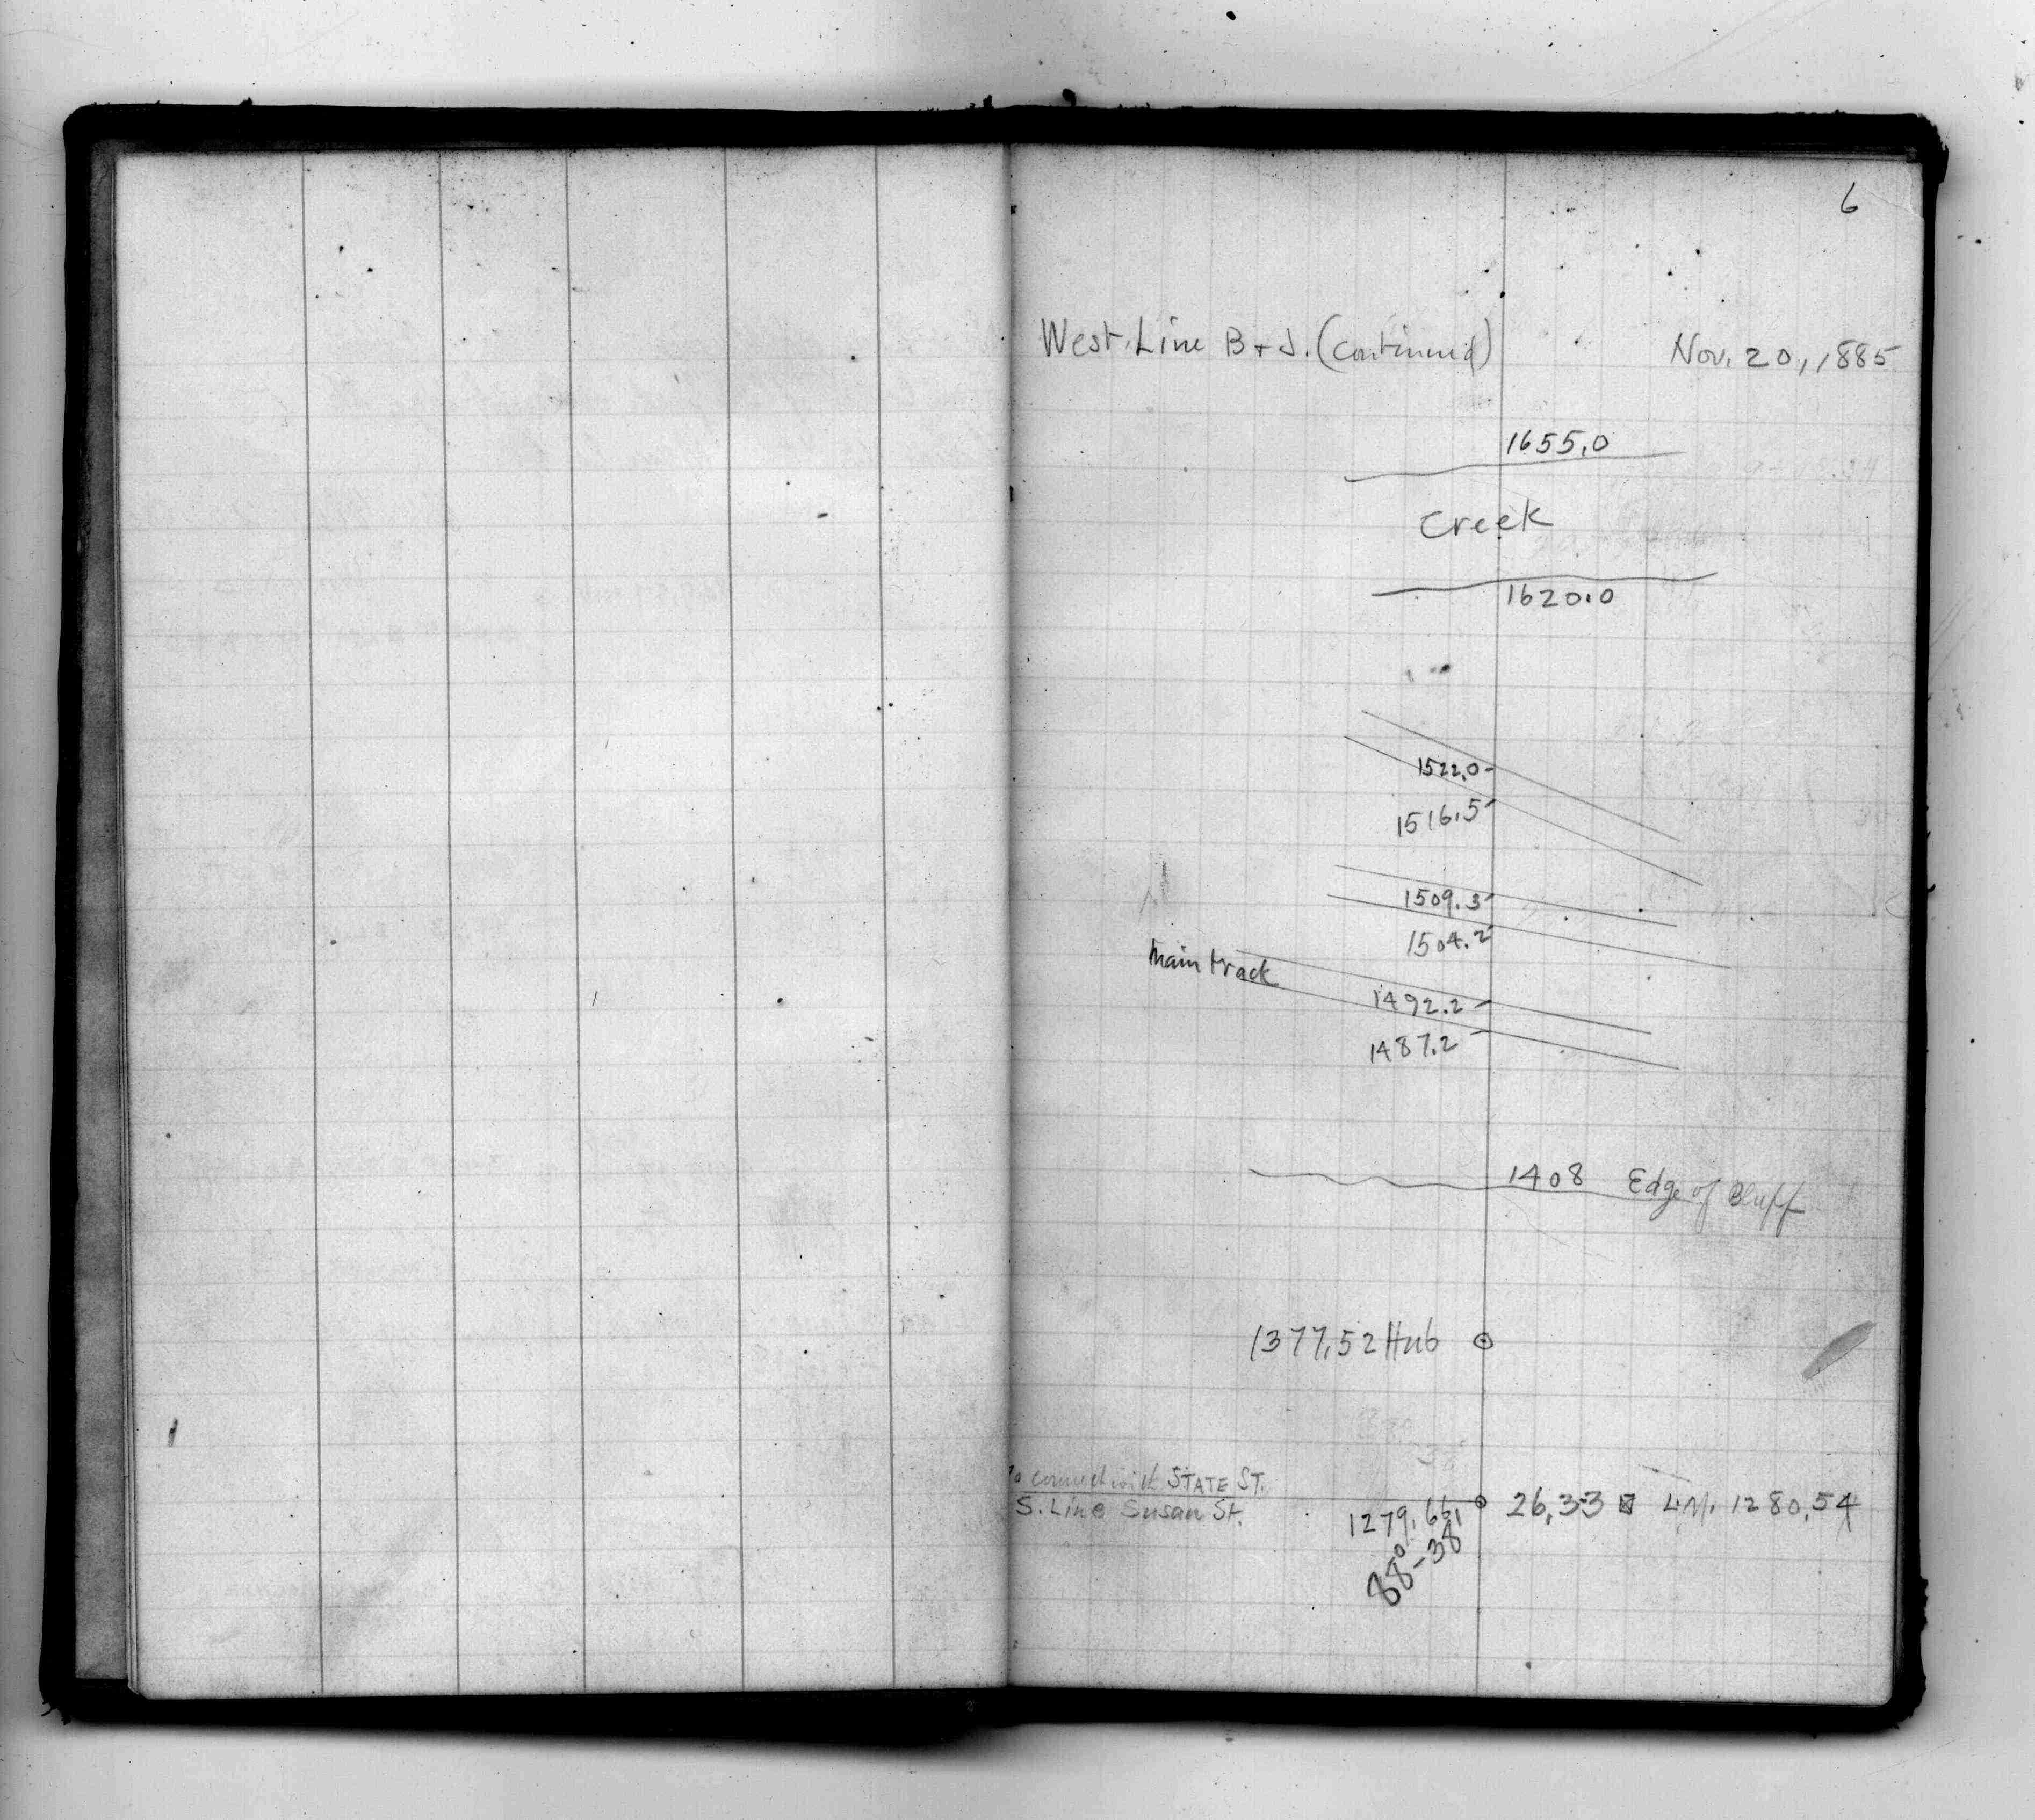 6
West. Line B + J. (Continued) Nov. 20, 1885
1655.0
Creek
1620.0
1522.0
1516.5
1509.3
1504.2
Main track
1492.2
1487.2
1408 Edge of Bluff
1377.52 Hub
To connect with STATE ST.
S. Line Susan St.
1279.66 26.33 1280.54
88°-38'